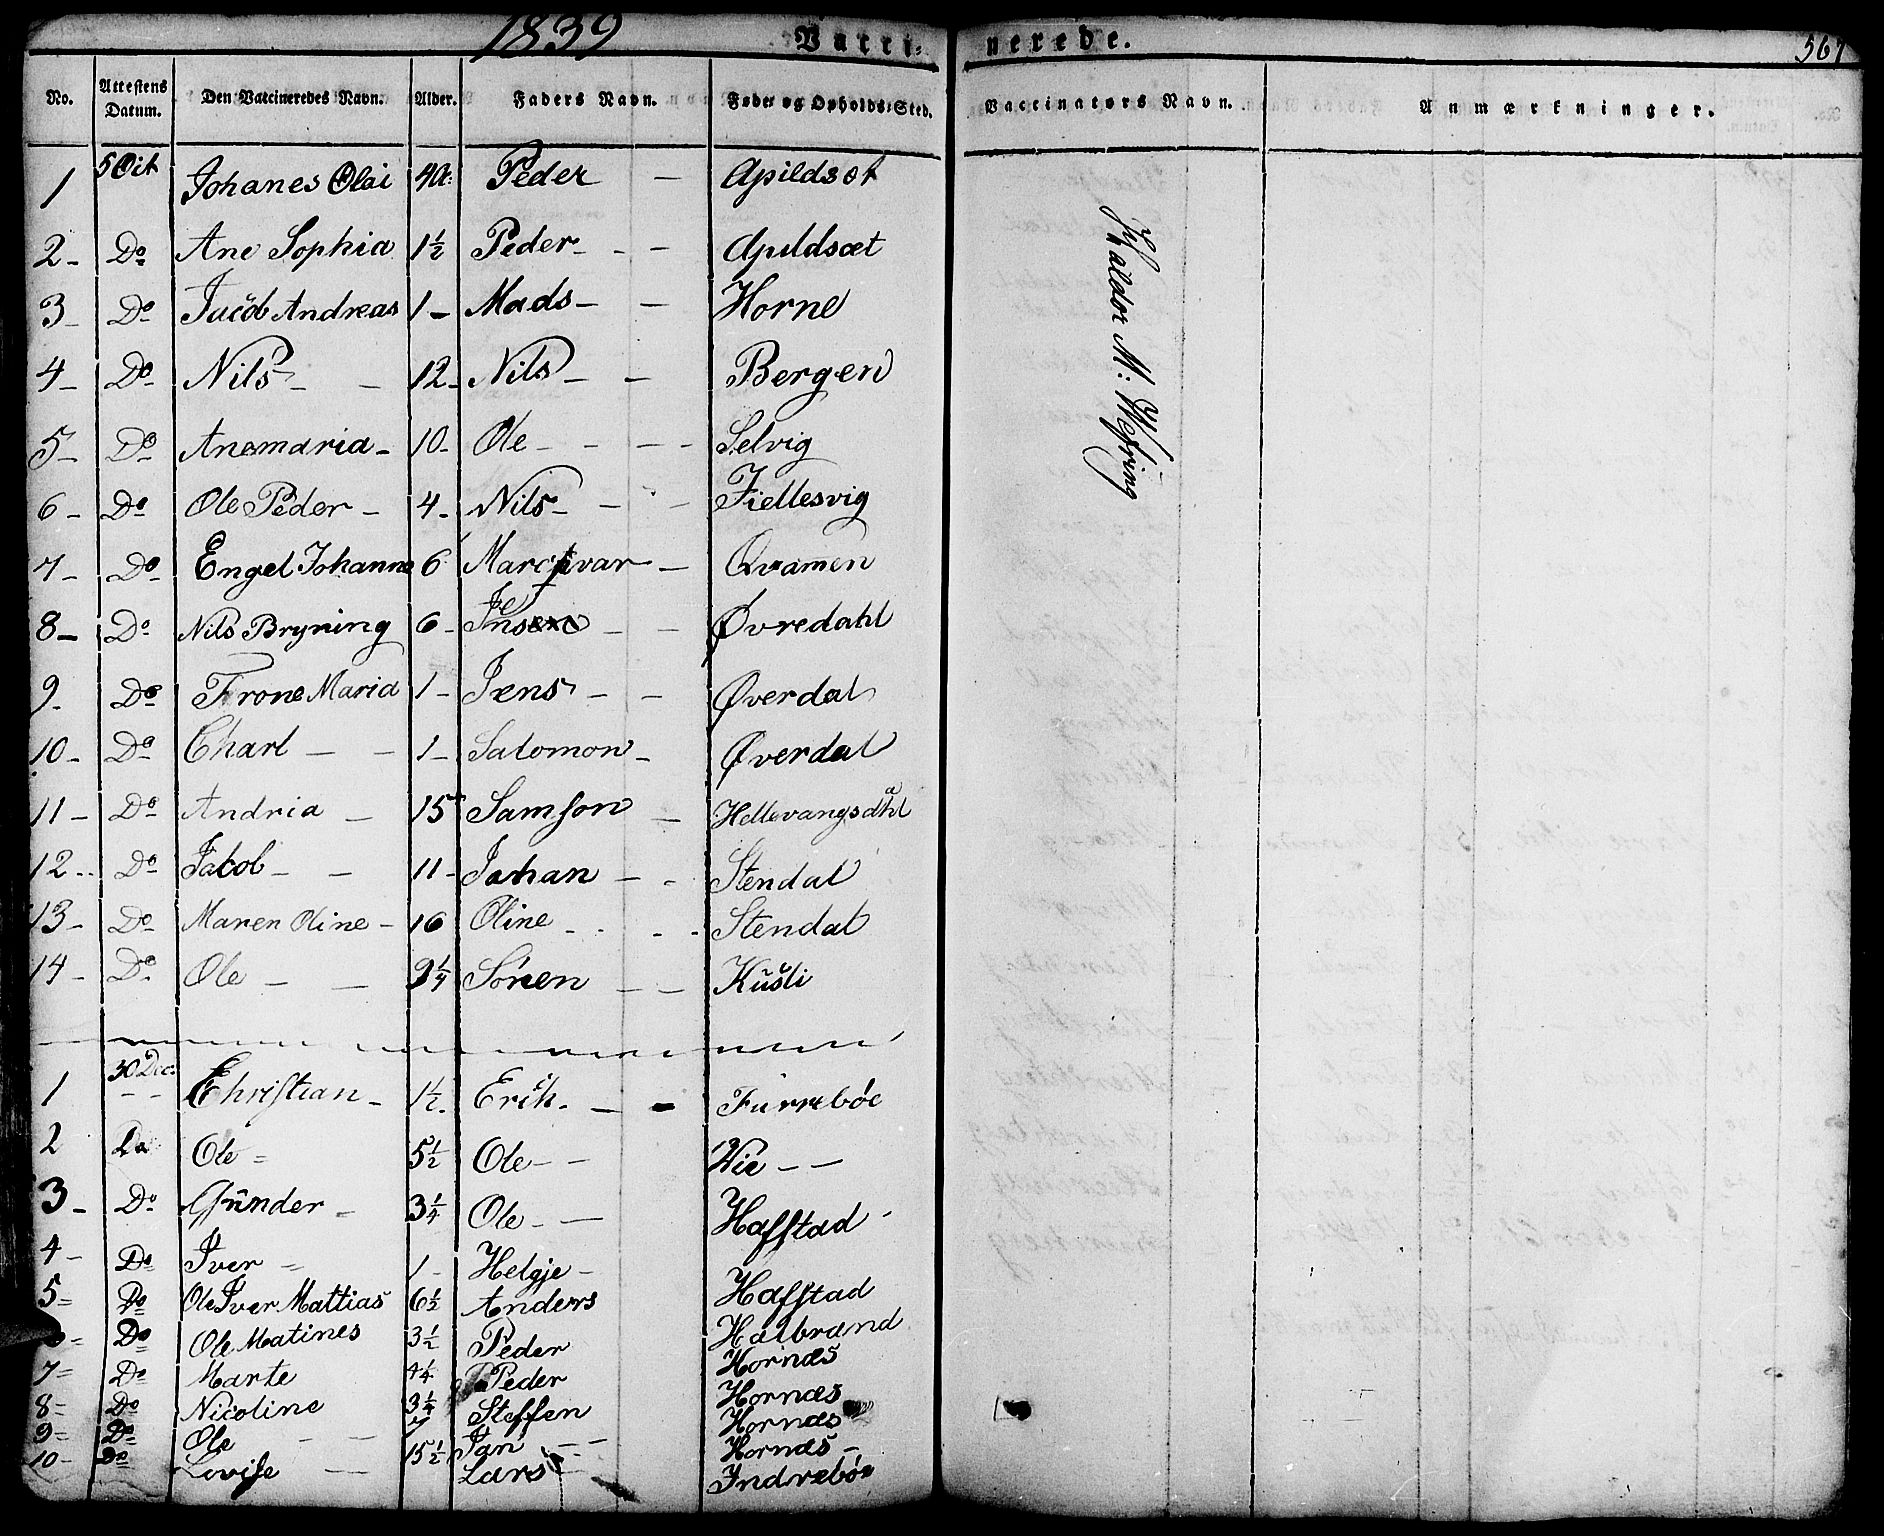 1839 Vacci- nerede. 567
No. Attestens Datum. Den Vaccineredes Navn. Alder. Faders Navn. Føde- og Opholds-Sted. Vaccinatørs Navn. Anmærkninger.
1 5 Oct Johanes Olai 4 A: Peder — Apildsøt
2 - Do Ane Sophia 1½ Peder - - — Apuldsæt
3 - Do Jacob Andreas 1 - Mads - — Horne
4 - Do Nils - — 12 - Nils - — Bergen
5 - Do Anemaria - 10 - Ole - - - - Selvig
6 - Do Ole Peder - 4 - Nils - - - Fiellesvig
7 - Do Engel Johanne 6 - Qvamen
8 - Do Nils Bryning 6 - Je - - Øvredahl
9 - Do Trone Maria 1 - Jens - - Øverdal
10 - Do Charl — - 1 - Salomon - Øverdal
11 - Do Andria - 15 Samson - Hellevangsdahl
12 - Do Jacob - - 11 - Johan - - Stendal
13 - Do Maren Oline - 16 Oline - - - - Stendal
14 - Do Ole - - Sören - - Kusli
Haldor M: Wefring
1 30 Dec: Christian - 1½ - Erik - — - Furrebóe
2 Do Ole = 5½ Ole - - Wie - -
3 - Do Gunder - 3¼ Ole - — Hafstad -
4 - Do Iver = 1 - Helgje -
5 = Do Ole Iver Mattias 6½ Anders Hafstad
6 = Do Ole Matines 3½ Peder Halbrand
7 = Do Marte 4¼ Peder Hornæs
8 = Do Nicoline 3¼ Steffen Hornæs
9 = Do Ole - - 7 Jan - - Hornæs
10 - Do Lovise — 15½ Lars Hornæs -
Indrebóe